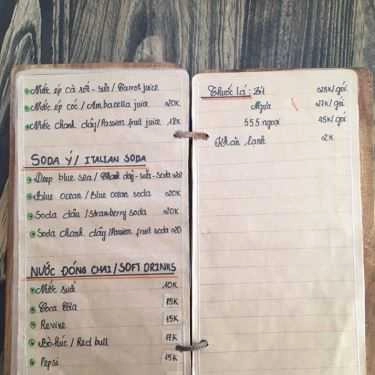 Nước ép cà rốt - sữa / Parrot juice
Nước ép cóc / Ambarella juice 20K
Nước chanh dây / Passion fruit juice 18K
SODA Ý / ITALIAN SODA
Deep blue sea / Chanh dây - sữa - soda
Blue ocean / Blue ocean soda 20K
Soda dâu / Strawberry soda 20K
Soda chanh dây / Passion fruit soda 20
NƯỚC ĐÓNG CHAI / SOFT DRINKS
Nước suối 10K
Coca Cola 15K
Revive 15K
Bò húc / Red bull 17K
Pepsi 15K
Thuốc lá: Jet 28K / gói
Ngựa 27K / gói
555 ngoại 45K / gói
Khăn lạnh 2K